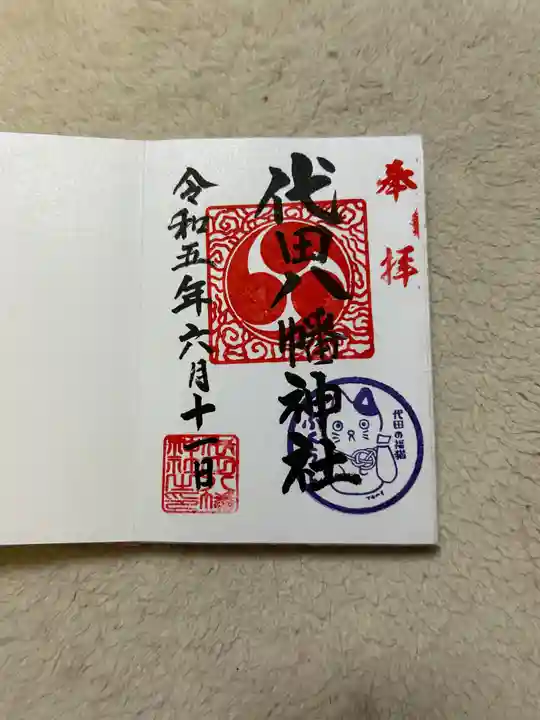 奉拝
代田八幡神社
代田の福猫
令和五年六月十一日